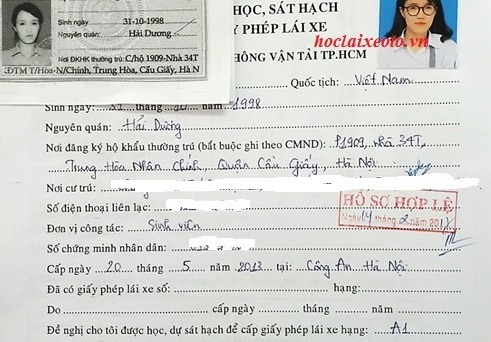 Sinh ngày 31-10-1998
Nguyên quán: Hải Dương
Nơi ĐKHK thường trú: C/hộ 1909-Nhà 34T
KĐTM T/Hòa-N/Chính, Trung Hòa, Cầu Giấy, Hà N
HỌC, SÁT HẠCH
Y PHÉP LÁI XE
hoclaixeoto.vn
HÔNG VẬN TẢI TP.HCM
Quốc tịch: Việt Nam
Sinh ngày: 31 tháng 10 năm 1998
Nguyên quán: Hải Dương
Nơi đăng ký hộ khẩu thường trú (bắt buộc ghi theo CMND): P1909, nhà 34T,
Trung Hòa Nhân Chính, Quận Cầu Giấy, Hà Nội
Nơi cư trú:
Số điện thoại liên lạc:
HỒ SƠ HỢP LỆ
Ngày 14 tháng 2 năm 2017
Đơn vị công tác: Sinh viên
Số chứng minh nhân dân:
Cấp ngày 20 tháng 5 năm 2013 tại: Công An Hà Nội
Đã có giấy phép lái xe số: hạng:
Do cấp ngày tháng năm
Đề nghị cho tôi được học, dự sát hạch để cấp giấy phép lái xe hạng: A1